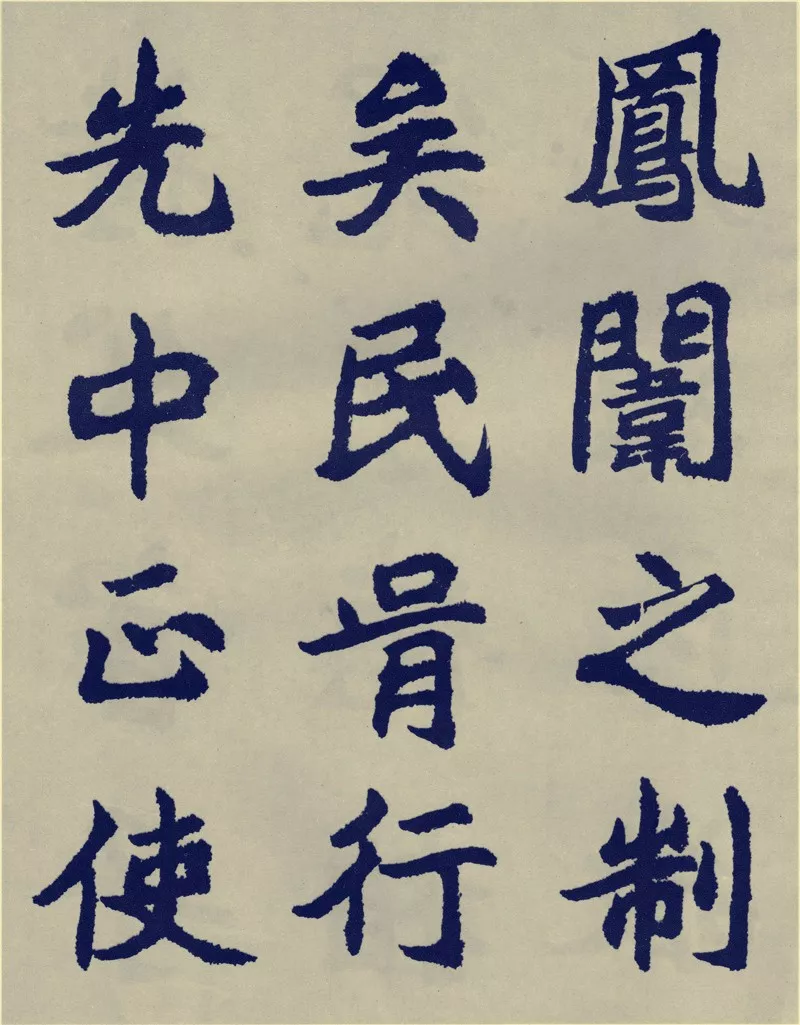 鳳闈之制
矣民胥行
先中正使